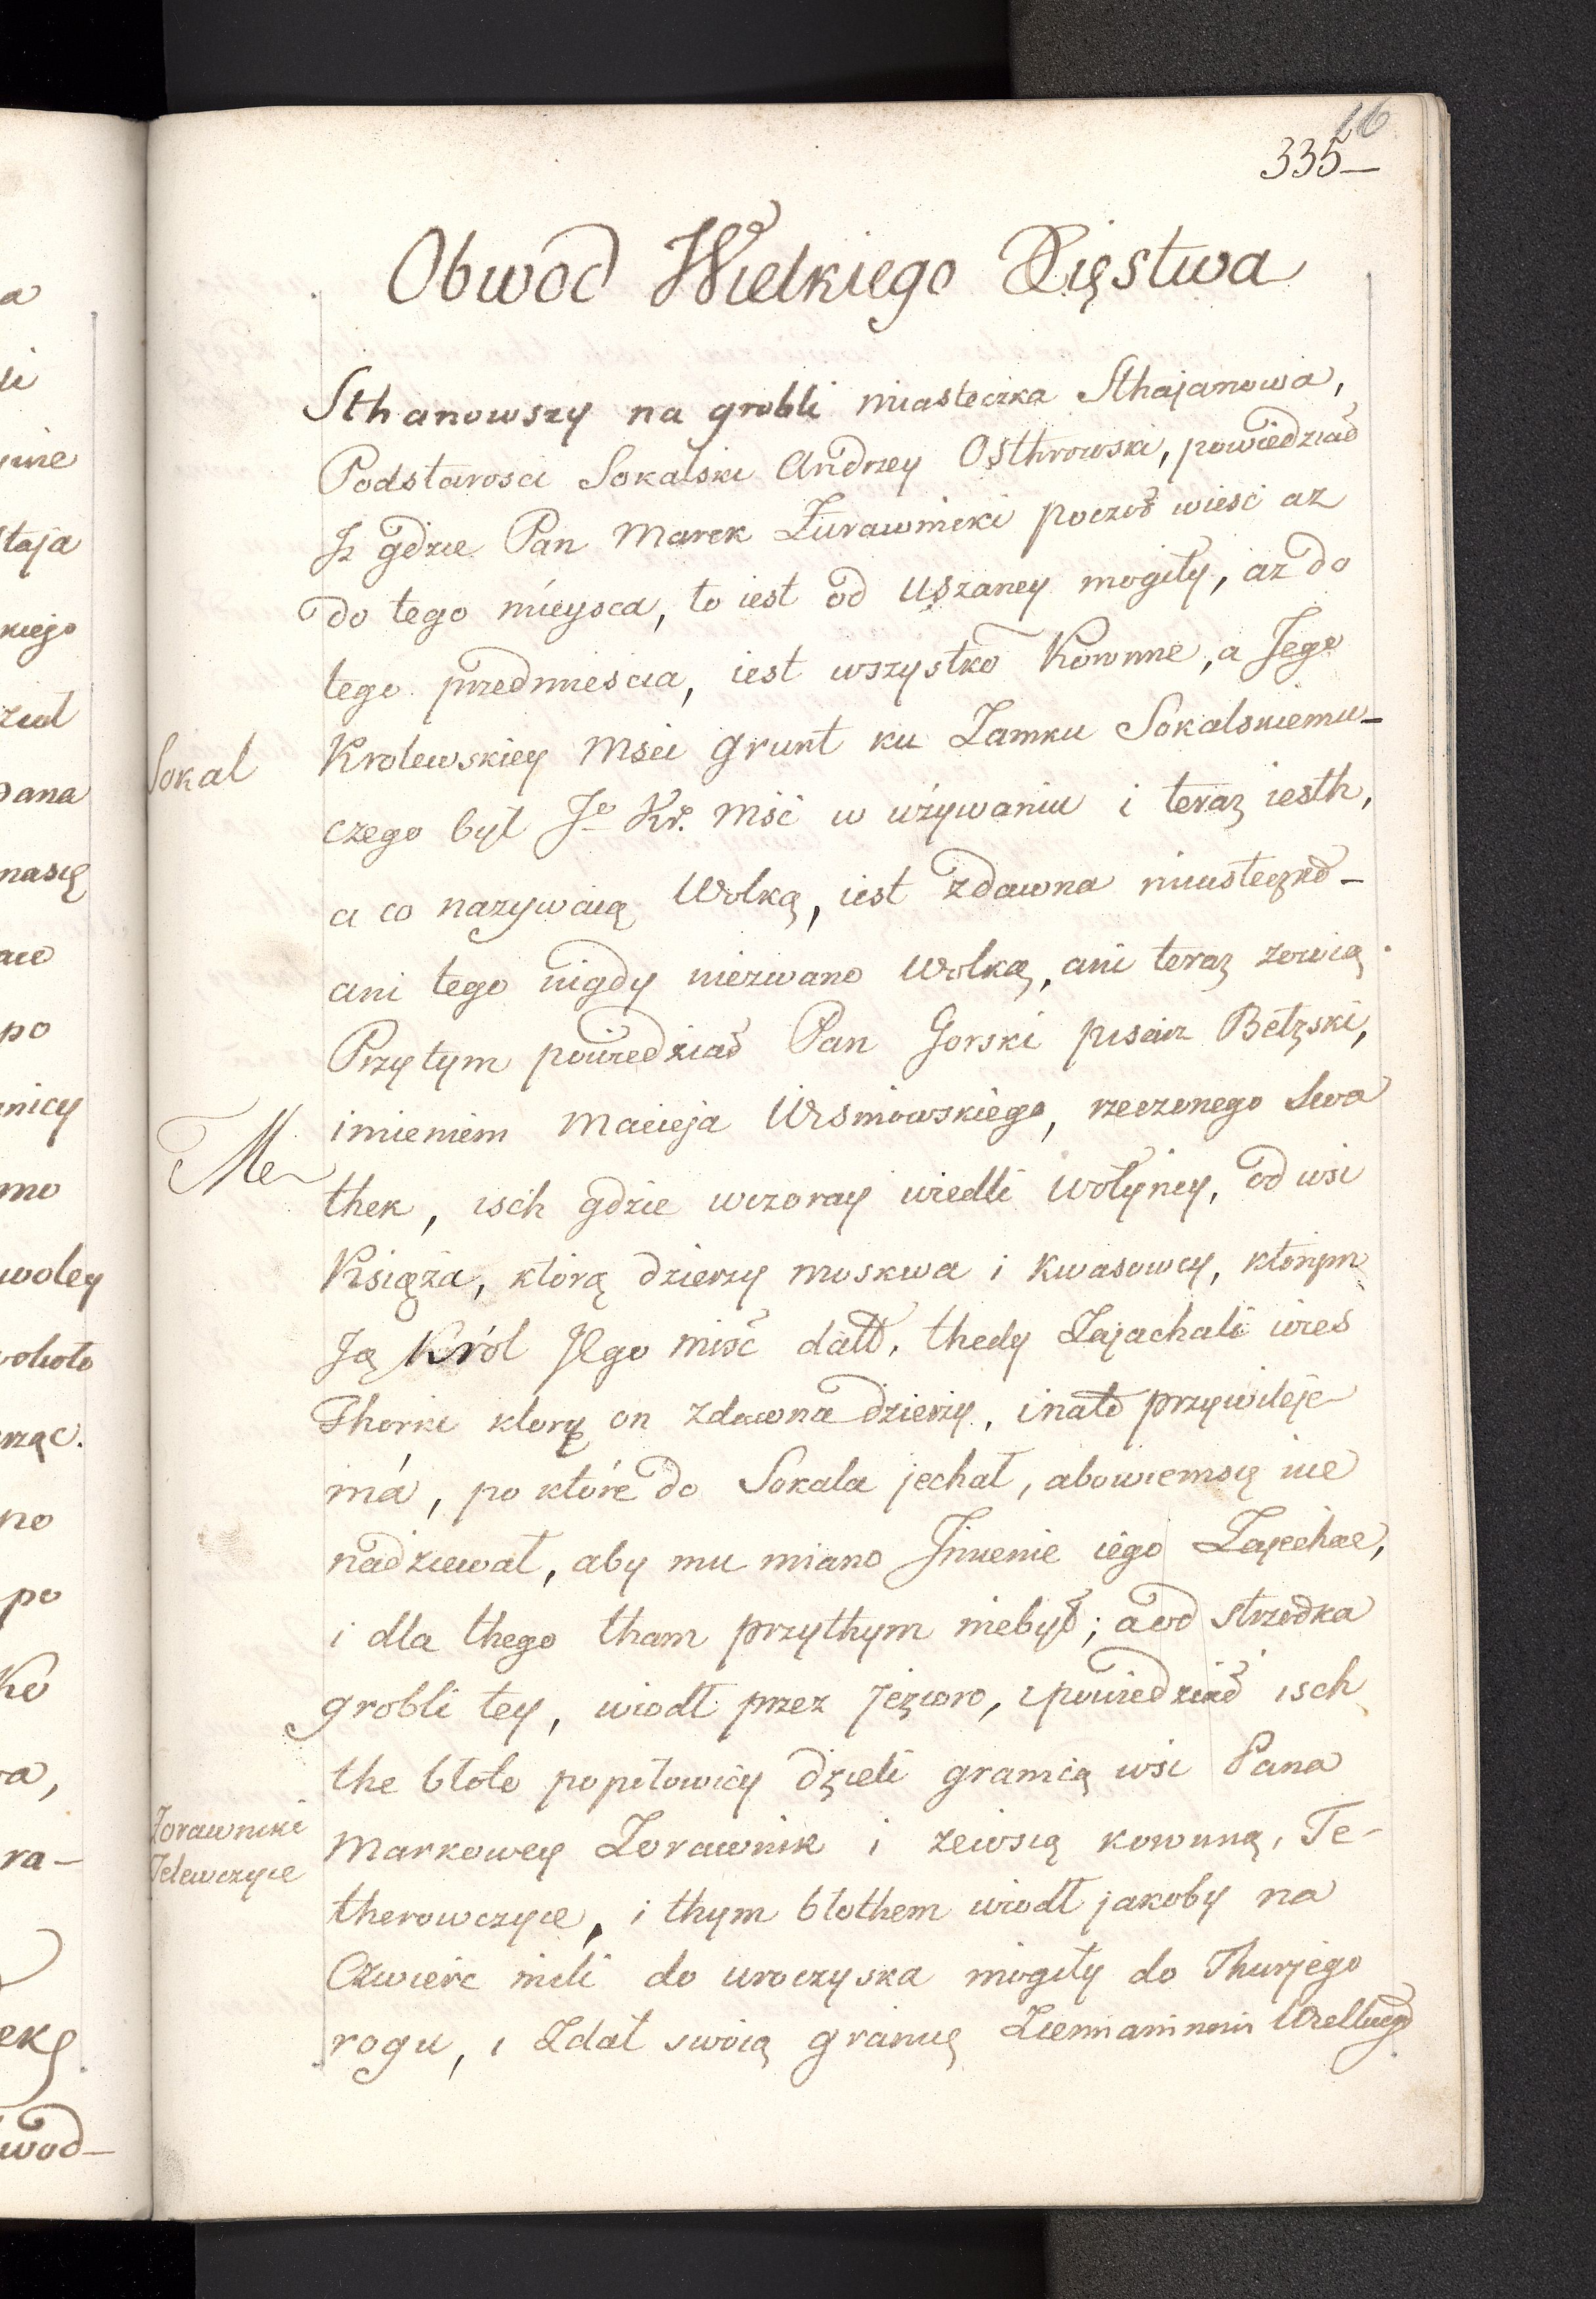 16
335
Obwod Wielkiego Xięstwa
Sthanowszy na grobli miasteczka Sthajanowa,
Podstarosci Sokalski Andrzey Osthrowski, powiedział
Iz gdzie Pan Marek Zurawnicki poczoł wiesć az
do tego mieysca, to iest od Uszaney mogiły, az do
tego przedmiescia, iest wszystko Koronne, a Jego
Krolewskiey Msci grunt ku Zamku Sokalskiemu
czego był Jo Kr. Mść w używaniu i teraz iesth,
a co nazywaią Wolką, iest zdawna miasteczko
ani tego nigdy niezwano Wolką, ani teraz zowią
Przytym powiedział Pan Gorski pisarz Bełzski,
imieniem Macieja Wismowskiego, rzeczonego Swa
thek, isch gdzie wczoray wiedli Wołyńcy, od wsi
Księża, którą dzierzy moskwa i Kwasowcy, którym
Ją Król Jego miść dałł, thedy Zajachali wies
Thorki którą on zdawna dzierży, inato przywileje
má, po które do Sokala jechał, abowiemsię nie
nadziewał, aby mu miano Jmienie iego Zajechać,
i dla thego tham przythym niebył; a od strzodka
grobli tey, wiodł przez jezioro, i powiedział isch
the błoto popiłowicy dzieli granicą wsi Pana
Markowey Zorawnik i zewsią koronną, Te-
therowczyce, i thym błothem wiodł jakoby na
Czwierć mili do uroczyska mogiły do Thurjego
rogu, i Zdał swoią granicę Ziemianinowi Wielkiego
Sokal
Zorawniki
Telewczyce